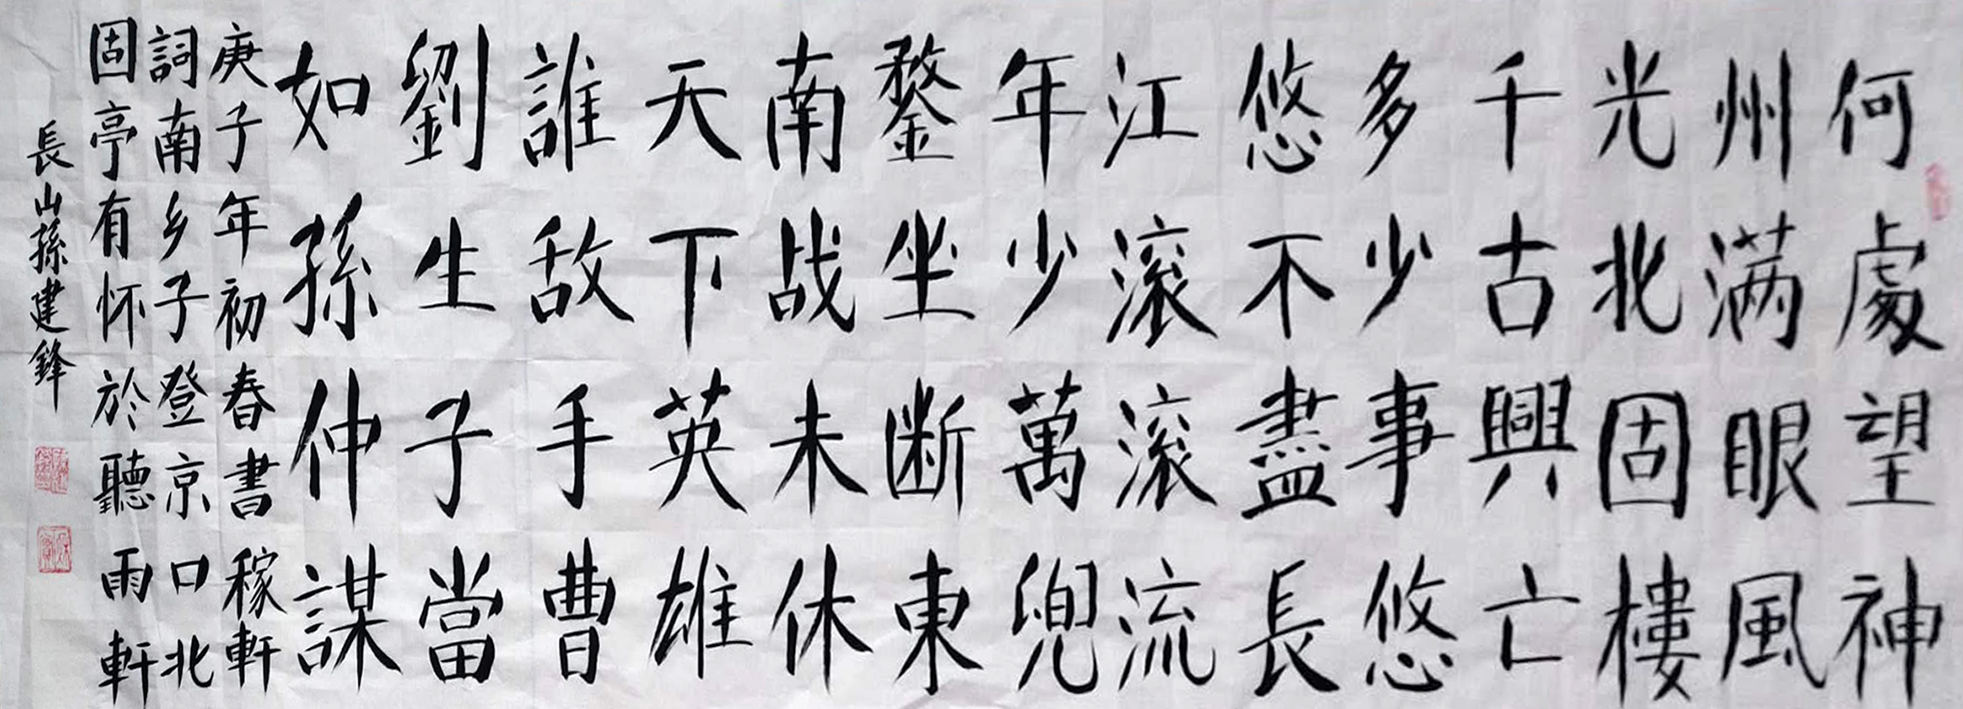 何處望神
州满眼風
光北固樓
千古興亡
多少事悠
悠不盡長
江滚滚流
年少萬兜
鍪坐断東
南战未休
天下英雄
誰敌手曹
劉生子當
如孫仲謀
庚子年初春書稼軒
詞南乡子登京口北
固亭有怀於聽雨軒
長山孫建鋒